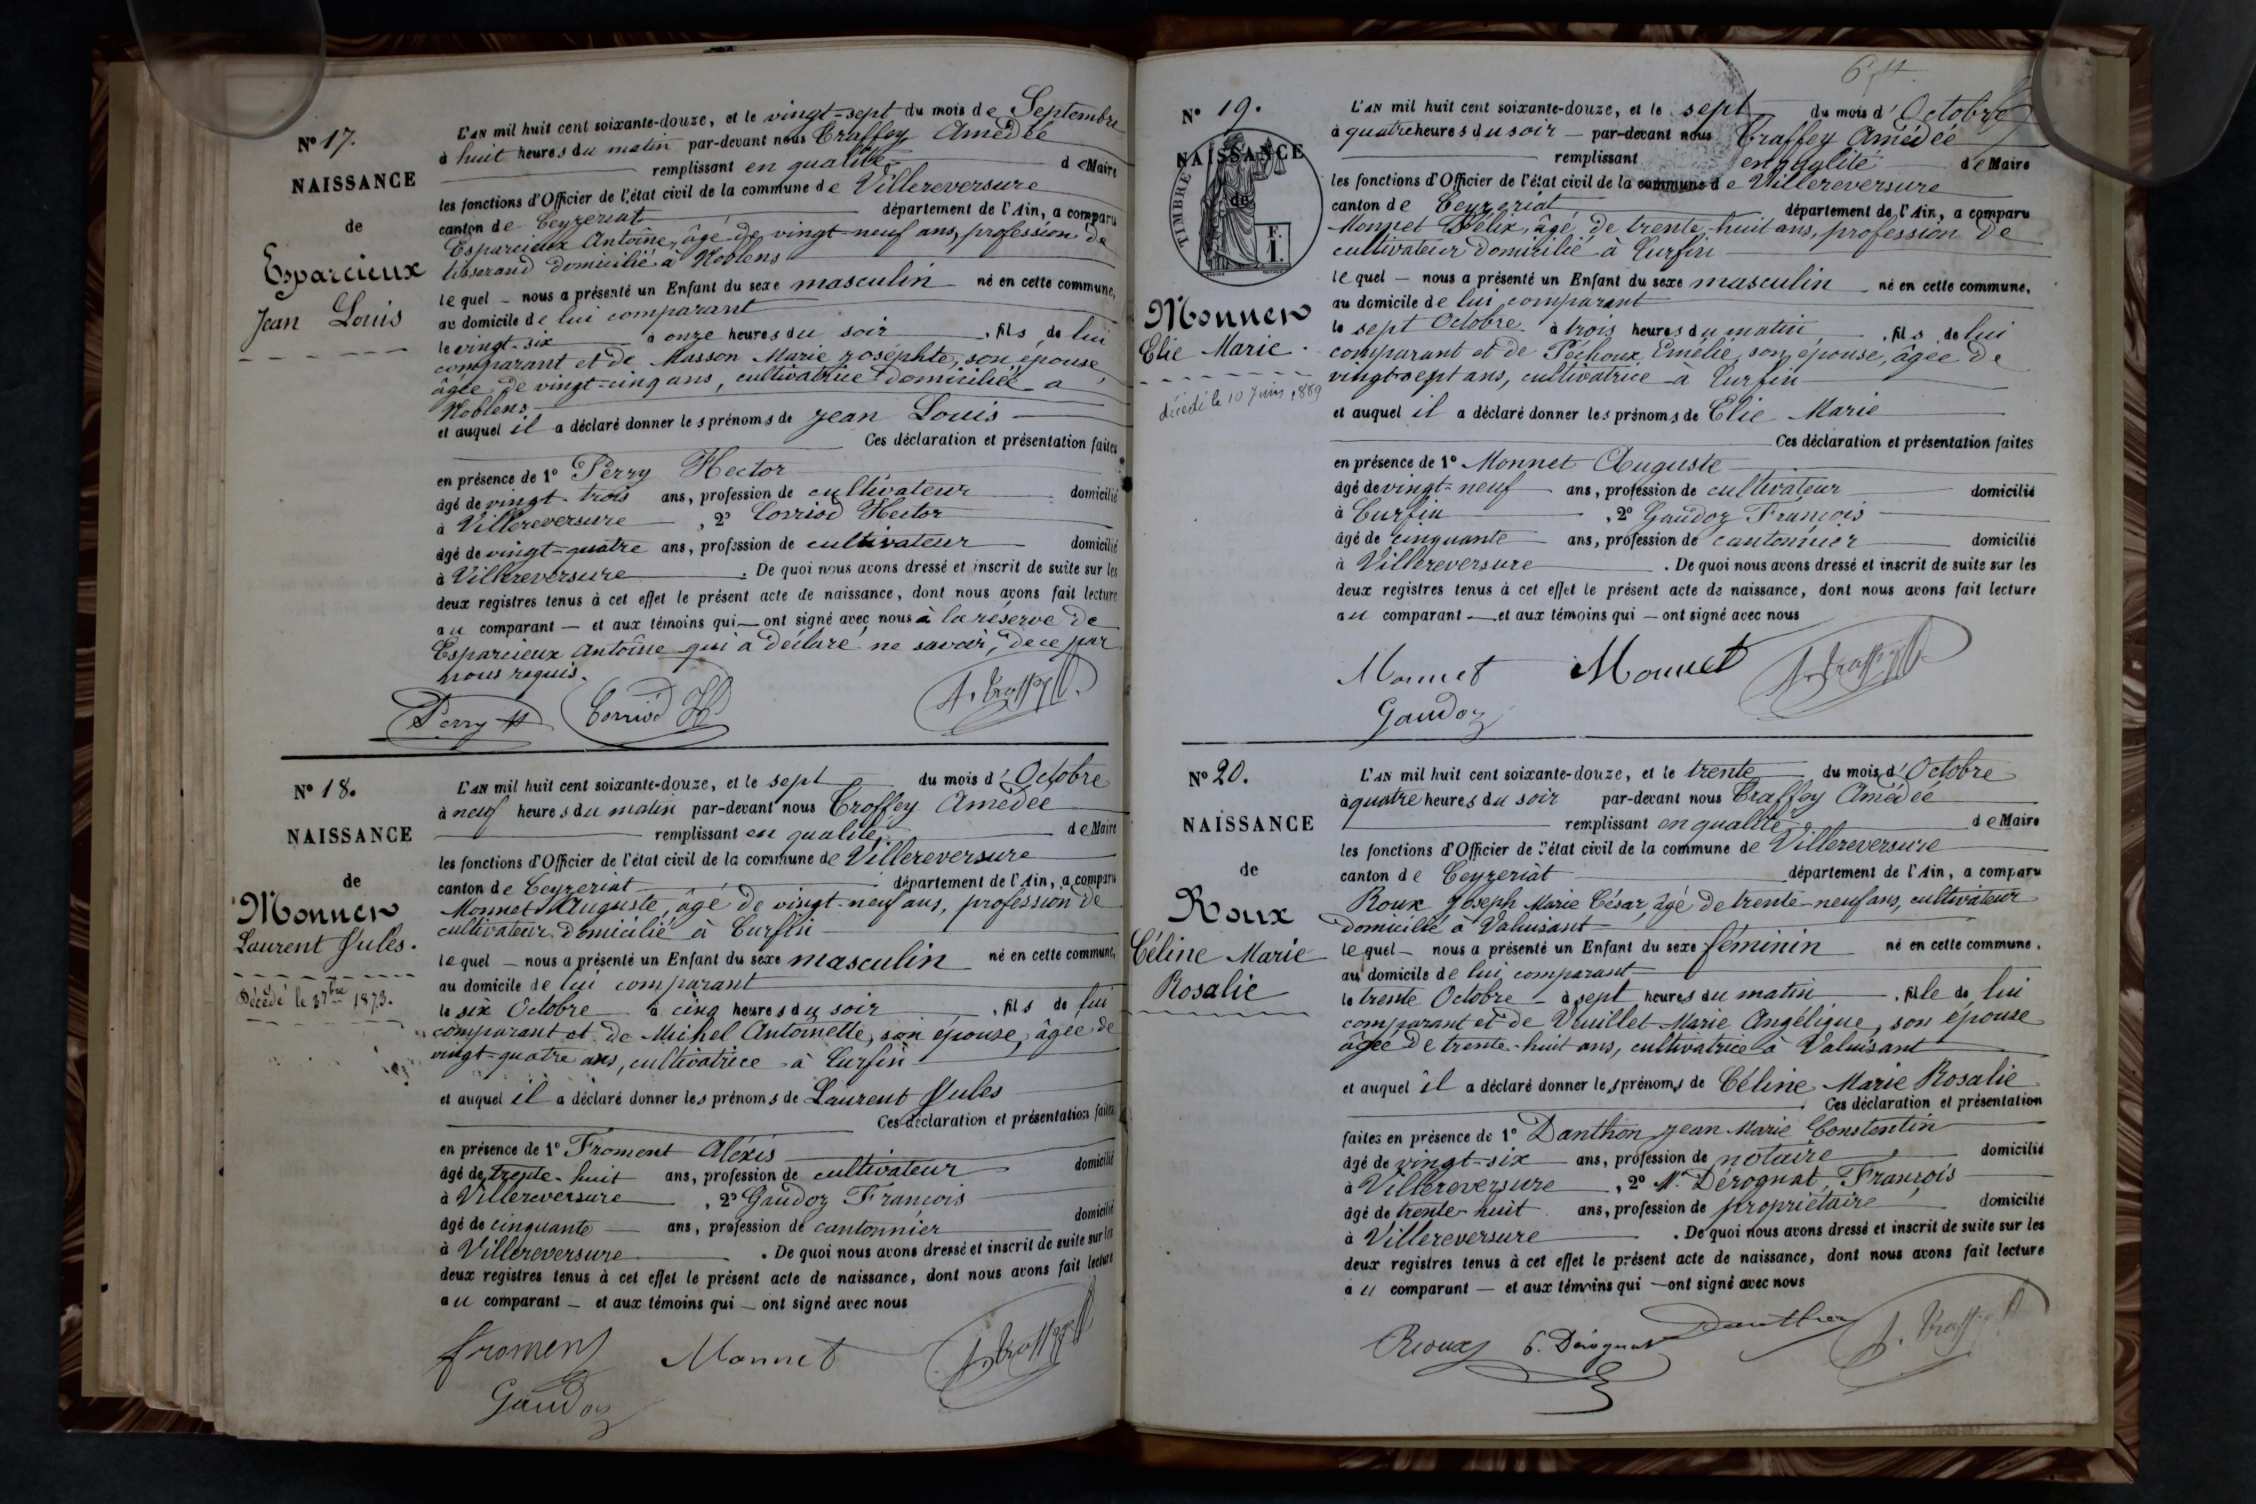 N° 17.
NAISSANCE
de
Esparcieux
Jean Louis
L'AN mil huit cent soixante-douze, et le vingt-sept du mois de Septembre
à huit heures du matin par-devant nous Traffey Amédée
remplissant en qualité de Maire
les fonctions d'Officier de l'état civil de la commune de Villereversure
canton de Ceyzeriat département de l'Ain, a comparu
Esparcieux Antoine, âgé de vingt-neuf ans, profession de
tisserand domicilié à Noblens
lequel nous a présenté un Enfant du sexe masculin né en cette commune,
au domicile de lui comparant
le vingt-six à onze heures du soir, fils de lui
comparant et de Masson Marie Joséphte, son épouse,
âgée de vingt-cinq ans, cultivatrice domiciliée à
Noblens
et auquel il a déclaré donner les prénoms de Jean Louis
Ces déclaration et présentation faites
en présence de 1° Perry Hector
âgé de vingt-trois ans, profession de cultivateur domicilié
à Villereversure, 2° Corriod Hector
âgé de vingt-quatre ans, profession de cultivateur domicilié
à Villereversure. De quoi nous avons dressé et inscrit de suite sur les
deux registres tenus à cet effet le présent acte de naissance, dont nous avons fait lecture
au comparant et aux témoins qui ont signé avec nous à la réserve de
Esparcieux Antoine qui a déclaré ne savoir, de ce par
nous requis.
Perry H Corriod H A. Traffey
N° 18.
NAISSANCE
de
Monnet
Laurent Jules.
Décédé le 3 7bre 1873.
L'AN mil huit cent soixante-douze, et le sept du mois d'Octobre
à neuf heures du matin par-devant nous Traffey Amédée
remplissant en qualité de Maire
les fonctions d'Officier de l'état civil de la commune de Villereversure
canton de Ceyzeriat département de l'Ain, a comparu
Monnet Auguste, âgé de vingt-neuf ans, profession de
cultivateur domicilié à Curfin
lequel nous a présenté un Enfant du sexe masculin né en cette commune,
au domicile de lui comparant
le six Octobre à cinq heures du soir, fils de lui
comparant et de Michel Antoinette, son épouse, âgée de
vingt-quatre ans, cultivatrice à Curfin
et auquel il a déclaré donner les prénoms de Laurent Jules
Ces déclaration et présentation faites
en présence de 1° Froment Aléxis
âgé de trente-huit ans, profession de cultivateur domicilié
à Villereversure, 2° Gaudoz François
âgé de cinquante ans, profession de cantonnier domicilié
à Villereversure. De quoi nous avons dressé et inscrit de suite sur les
deux registres tenus à cet effet le présent acte de naissance, dont nous avons fait lecture
au comparant et aux témoins qui ont signé avec nous
froment Monnet A. Traffey
Gaudoz
N° 19.
NAISSANCE
de
TIMBRE
F.
1.
Monnet
Elie Marie.
décédé le 10 Juin 1889
L'AN mil huit cent soixante-douze, et le sept du mois d'Octobre
à quatre heures du soir par-devant nous Traffey Amédée
remplissant en qualité de Maire
les fonctions d'Officier de l'état civil de la commune de Villereversure
canton de Ceyzeriat département de l'Ain, a comparu
Monnet Félix, âgé de trente-huit ans, profession de
cultivateur domicilié à Curfin
lequel nous a présenté un Enfant du sexe masculin né en cette commune,
au domicile de lui comparant
le sept Octobre à trois heures du matin, fils de lui
comparant et de Péchoux Emélie, son épouse, âgée de
vingt-sept ans, cultivatrice à Curfin
et auquel il a déclaré donner les prénoms de Elie Marie
Ces déclaration et présentation faites
en présence de 1° Monnet Auguste
âgé de vingt-neuf ans, profession de cultivateur domicilié
à Curfin, 2° Gaudoz François
âgé de cinquante ans, profession de cantonnier domicilié
à Villereversure. De quoi nous avons dressé et inscrit de suite sur les
deux registres tenus à cet effet le présent acte de naissance, dont nous avons fait lecture
au comparant et aux témoins qui ont signé avec nous
Monnet Monnet A. Traffey
Gaudoz
N° 20.
NAISSANCE
de
Roux
Céline Marie
Rosalie
L'AN mil huit cent soixante-douze, et le trente du mois d'Octobre
à quatre heures du soir par-devant nous Traffey Amédée
remplissant en qualité de Maire
les fonctions d'Officier de l'état civil de la commune de Villereversure
canton de Ceyzeriat département de l'Ain, a comparu
Roux Joseph Marie César, âgé de trente-neuf ans, cultivateur
domicilié à Valuisant
lequel nous a présenté un Enfant du sexe féminin né en cette commune,
au domicile de lui comparant
le trente Octobre à sept heures du matin, fille de lui
comparant et de Vuillet Marie Angélique, son épouse
âgée de trente-huit ans, cultivatrice à Valuisant
et auquel il a déclaré donner les prénoms de Céline Marie Rosalie
Ces déclaration et présentation
faites en présence de 1° Danthon Jean Marie Constentin
âgé de vingt-six ans, profession de notaire domicilié
à Villereversure, 2° Mr Dérognat François
âgé de trente-huit ans, profession de propriétaire domicilié
à Villereversure. De quoi nous avons dressé et inscrit de suite sur les
deux registres tenus à cet effet le présent acte de naissance, dont nous avons fait lecture
au comparant et aux témoins qui ont signé avec nous
Roux f. Dérognat Danthon A. Traffey